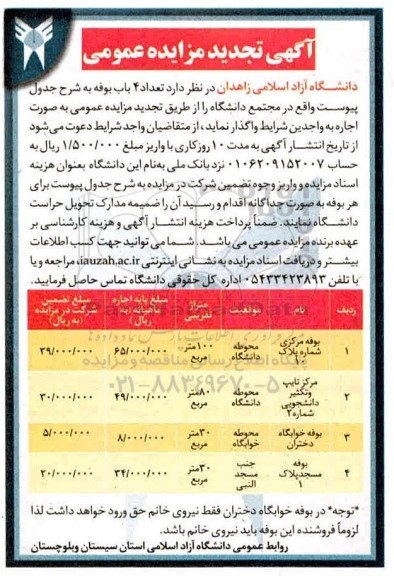 آگهی تجدید مزایده عمومی
دانشگاه آزاد اسلامی زاهدان در نظر دارد تعداد۴ باب بوفه به شرح جدول
پیوست واقع در مجتمع دانشگاه را از طریق تجدید مزایده عمومی به صورت
اجاره به واجدین شرایط واگذار نماید، از متقاضیان واجد شرایط دعوت می شود
از تاریخ انتشار آگهی به مدت ۱۰ روز کاری با واریز مبلغ ۱/۵۰۰/۰۰۰ ریال به
حساب ۰۱۰۶۲۰۹۱۵۲۰۰۷ نزد بانک ملی به نام این دانشگاه بعنوان هزینه
اسناد مزایده و واریز وجوه تضمین شرکت در مزایده به شرح جدول پیوست برای
هر بوفه به صورت جداگانه اقدام و رسید آن را ضمیمه مدارک تحویل حراست
دانشگاه نمایند. ضمناً پرداخت هزینه انتشار آگهی و هزینه کارشناسی بر
عهده برنده مزایده عمومی می باشد. شما می توانید جهت کسب اطلاعات
بیشتر و دریافت اسناد مزایده به نشانی اینترنتی iauzah.ac.ir، مراجعه و یا
با تلفن ۰۵۴۳۳۴۲۳۸۹۳ اداره کل حقوقی دانشگاه تماس حاصل فرمایید.
ردیف نام موقعیت متراژ تقریبی مبلغ پایه اجاره ماهیانه (به ریال) مبلغ تضمین شرکت در مزایده (به ریال)
۱ بوفه مرکزی شماره پلاک ۱۰ محوطه دانشگاه ۱۰۰متر مربع ۶۵/۰۰۰/۰۰۰ ۳۹/۰۰۰/۰۰۰
۲ مرکز تایپ وتکثیر دانشجویی شماره۲ محوطه دانشگاه ۸۰متر مربع ۴۹/۰۰۰/۰۰۰ ۳۰/۰۰۰/۰۰۰
۳ بوفه خوابگاه دختران محوطه خوابگاه ۳۰متر مربع ۸/۰۰۰/۰۰۰ ۵/۰۰۰/۰۰۰
۴ بوفه مسجدپلاک ۱ جنب مسجد النبی ۳۰متر مربع ۳۴/۰۰۰/۰۰۰ ۲۰/۰۰۰/۰۰۰
پایگاه اطلاع رسانی مناقصه و مزایده
۰۲۱-۸۸۳۴۹۶۷۰-۵
*توجه* در بوفه خوابگاه دختران فقط نیروی خانم حق ورود خواهد داشت لذا
لزوماً فروشنده این بوفه باید نیروی خانم باشد.
روابط عمومی دانشگاه آزاد اسلامی استان سیستان وبلوچستان